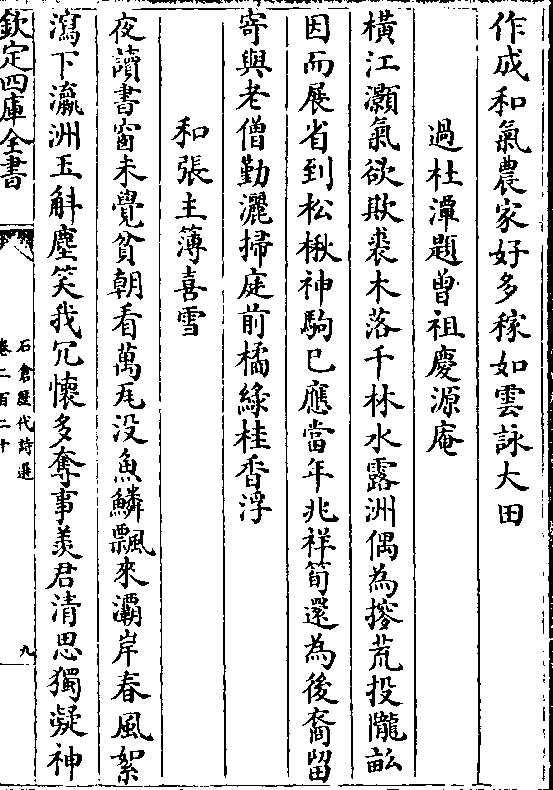 作成和氣農家好多稼如雲詠大田
過杜潭題曾祖慶源庵
橫江灝氣欲欺裘木落千林水露洲偶為搜荒投隴畝
因而展省到松楸神駒已應當年兆祥筍還為後裔留
寄與老僧勤灑掃庭前橘緑桂香浮
和張主簿喜雪
夜讀書窗未覺貧朝看萬瓦没魚鱗飄來灞岸春風絮
瀉下瀛洲玉斛塵笑我冗懷多奪事羨君清思獨凝神
欽定四庫全書
石倉歷代詩選
卷二百二十
九